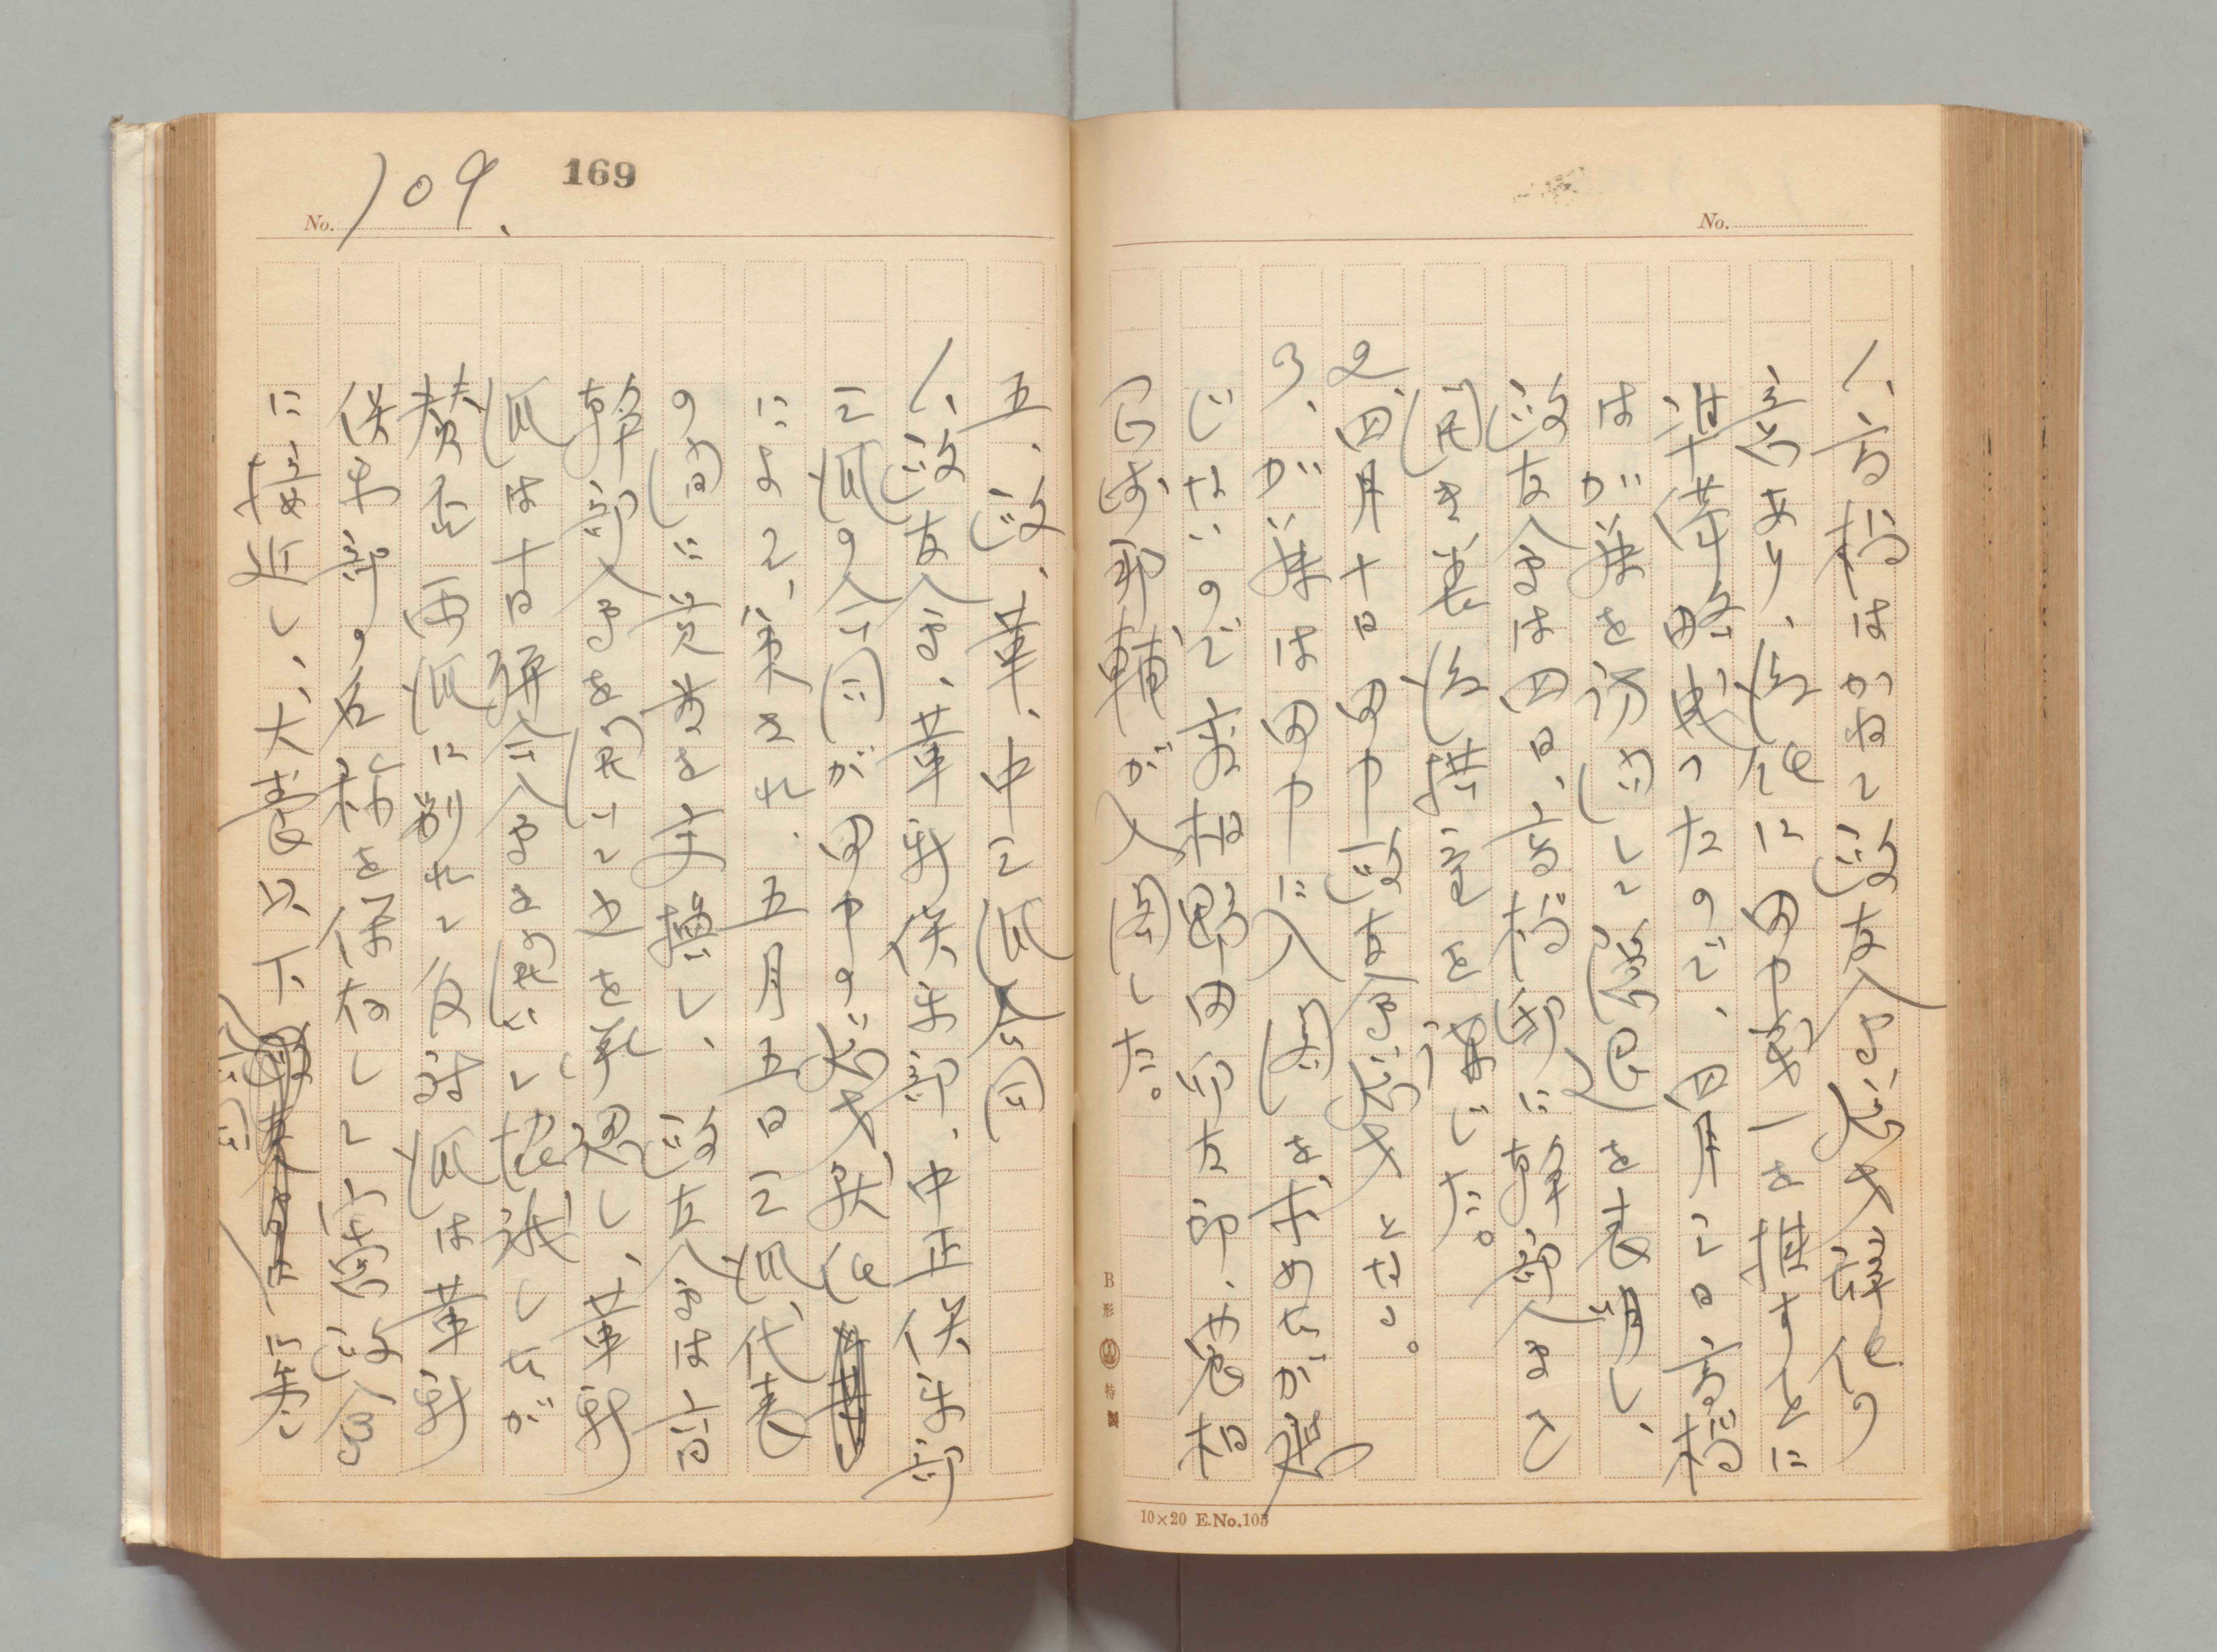 No.
1、高橋はかねて政友会総裁辞任の
意向あり、後任に田中義一を推すことに
準備略成ったので、四月三日高橋
は加藤を訪問して隠退を表明し、
政友会は四日、高橋邸に幹部会を
開き善後措置を講じた。
2、四月十日田中政友会総裁となる。
3、加藤は田中に入閣を求めたが応
じないので、商相野田卯太郎、農相
岡崎邦輔が入閣した。
B形 特製
10×20 E.No.105
169
No. 109.
五、政、革、中三派合同
1、政友会、革新倶楽部、中正倶楽部
三派の合同が田中の総裁就任
によって、策され、五月五日三派代表
の間に覚書を交換し、政友会は
幹部会を開いて之を承認し、革新
派は十日聯合会を開いて協議したが
賛否両派に別れて反対派は革新
倶楽部の名称を保存して憲政会
に接近し、犬養以下